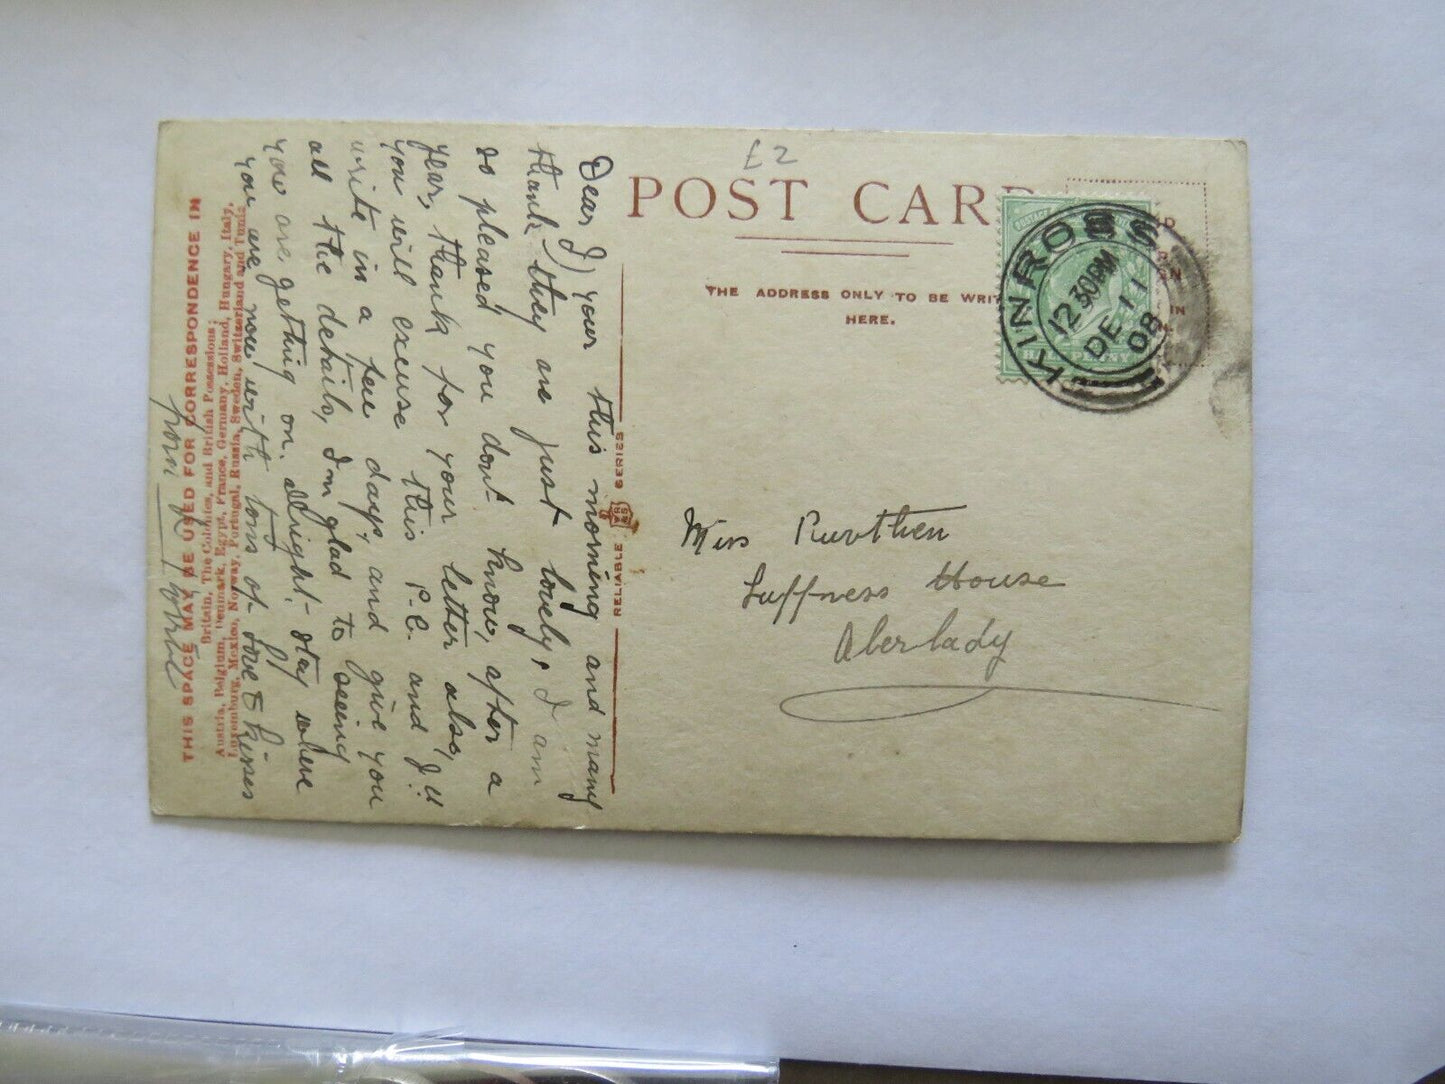 £2
POST CAR
THE ADDRESS ONLY TO BE WRIT
HERE.
KINROSS
12 30PM
DE 11
08
HALFPENNY
Miss Ruvthen
Luffness House
Aberlady
RELIABLE SERIES
THIS SPACE MAY BE USED FOR CORRESPONDENCE IN
Britain, The Colonies, and British Possessions;
Austria, Belgium, Denmark, Egypt, France, Germany, Holland, Hungary, Italy,
Luxemburg, Mexico, Norway, Portugal, Russia, Sweden, Switzerland and Tunis
Dear J) your this morning and many
thanks they are just lovely, I am
so pleased you don't know, after a
year, thank for your letter also,
you will excuse this P.C. and I'll
write in a few days, and give you
all the details, I'm glad to seeing
you are getting on allright. stay where
you are now with tons of love & kisses
from